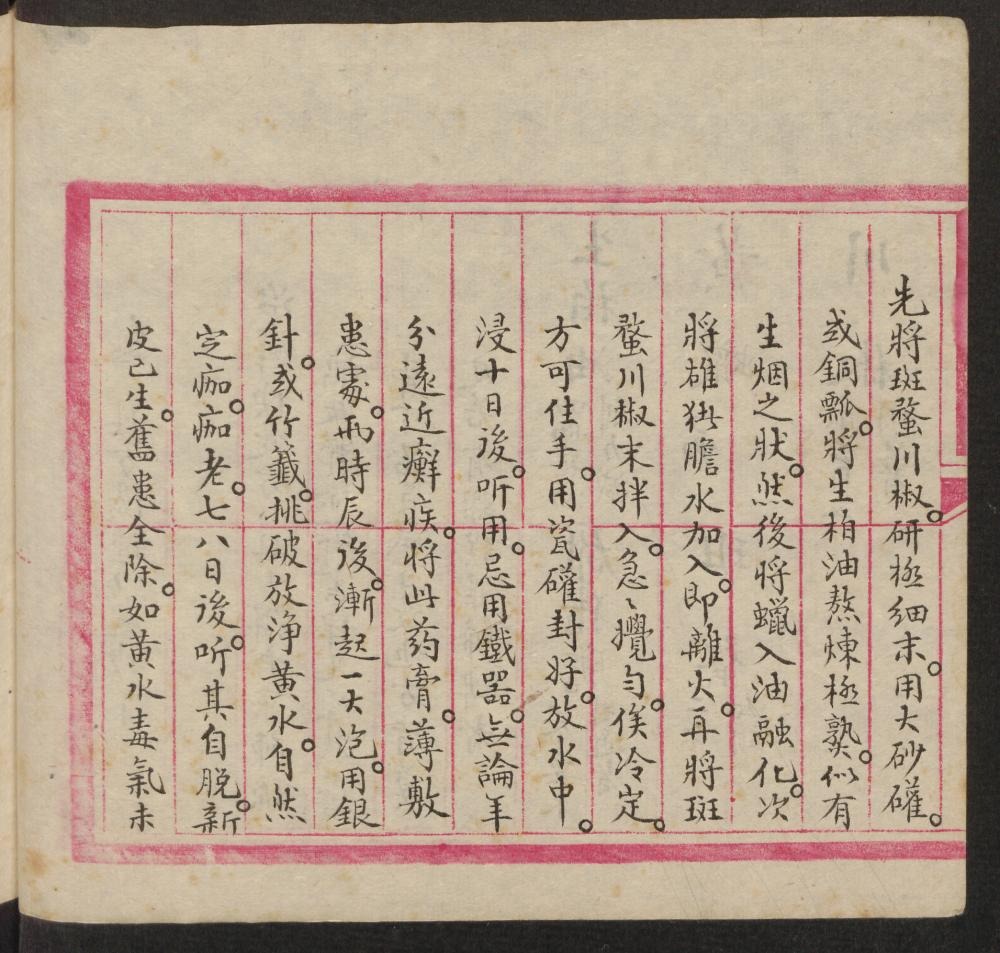 先將斑蝥川椒。研極細末。用大砂礶。
或銅瓢。將生柏油熬煉極熟。似有
生烟之狀。然後將蠟入油融化。次
將雄猪膽水加入。即離火。再將斑
蝥川椒末拌入。急〻攪勻。俟冷定。
方可住手。用瓷礶封好。放水中。
浸十日後。听用。忌用鐵器。無論年
分遠近癬疾。將此药膏。薄敷
患處。両時辰後。漸起一大泡。用銀
針。或竹籤。挑破放淨黄水。自然
定痂。痂老。七八日後。听其自脫。新
皮已生。舊患全除。如黄水毒氣未